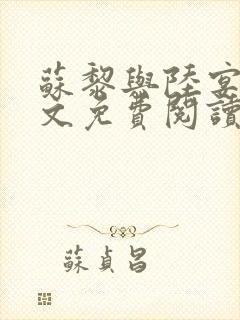 蘇黎與陸宴
文免費閱讀
蘇貞昌